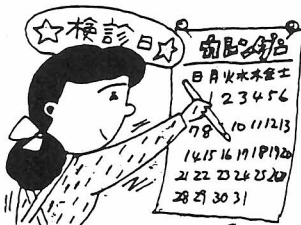 ☆検診日☆
カレンダー
日月火水木金土
1 2 3 4 5 6
7 8 10 11 12 13
14 15 16 17 18 19 20
21 22 23 24 25 26 27
28 29 30 31